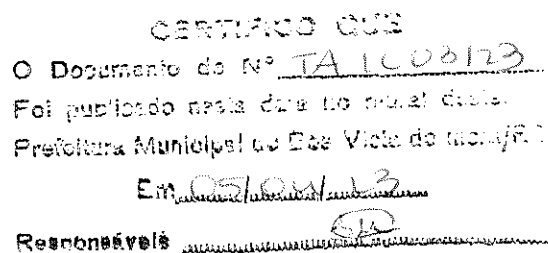 CERTIFICO QUE
O Documento de Nº TA
Foi publicado nesta data no mural desta
Prefeitura Municipal de Boa Vista do
Em 05/04/13
Responsáveis